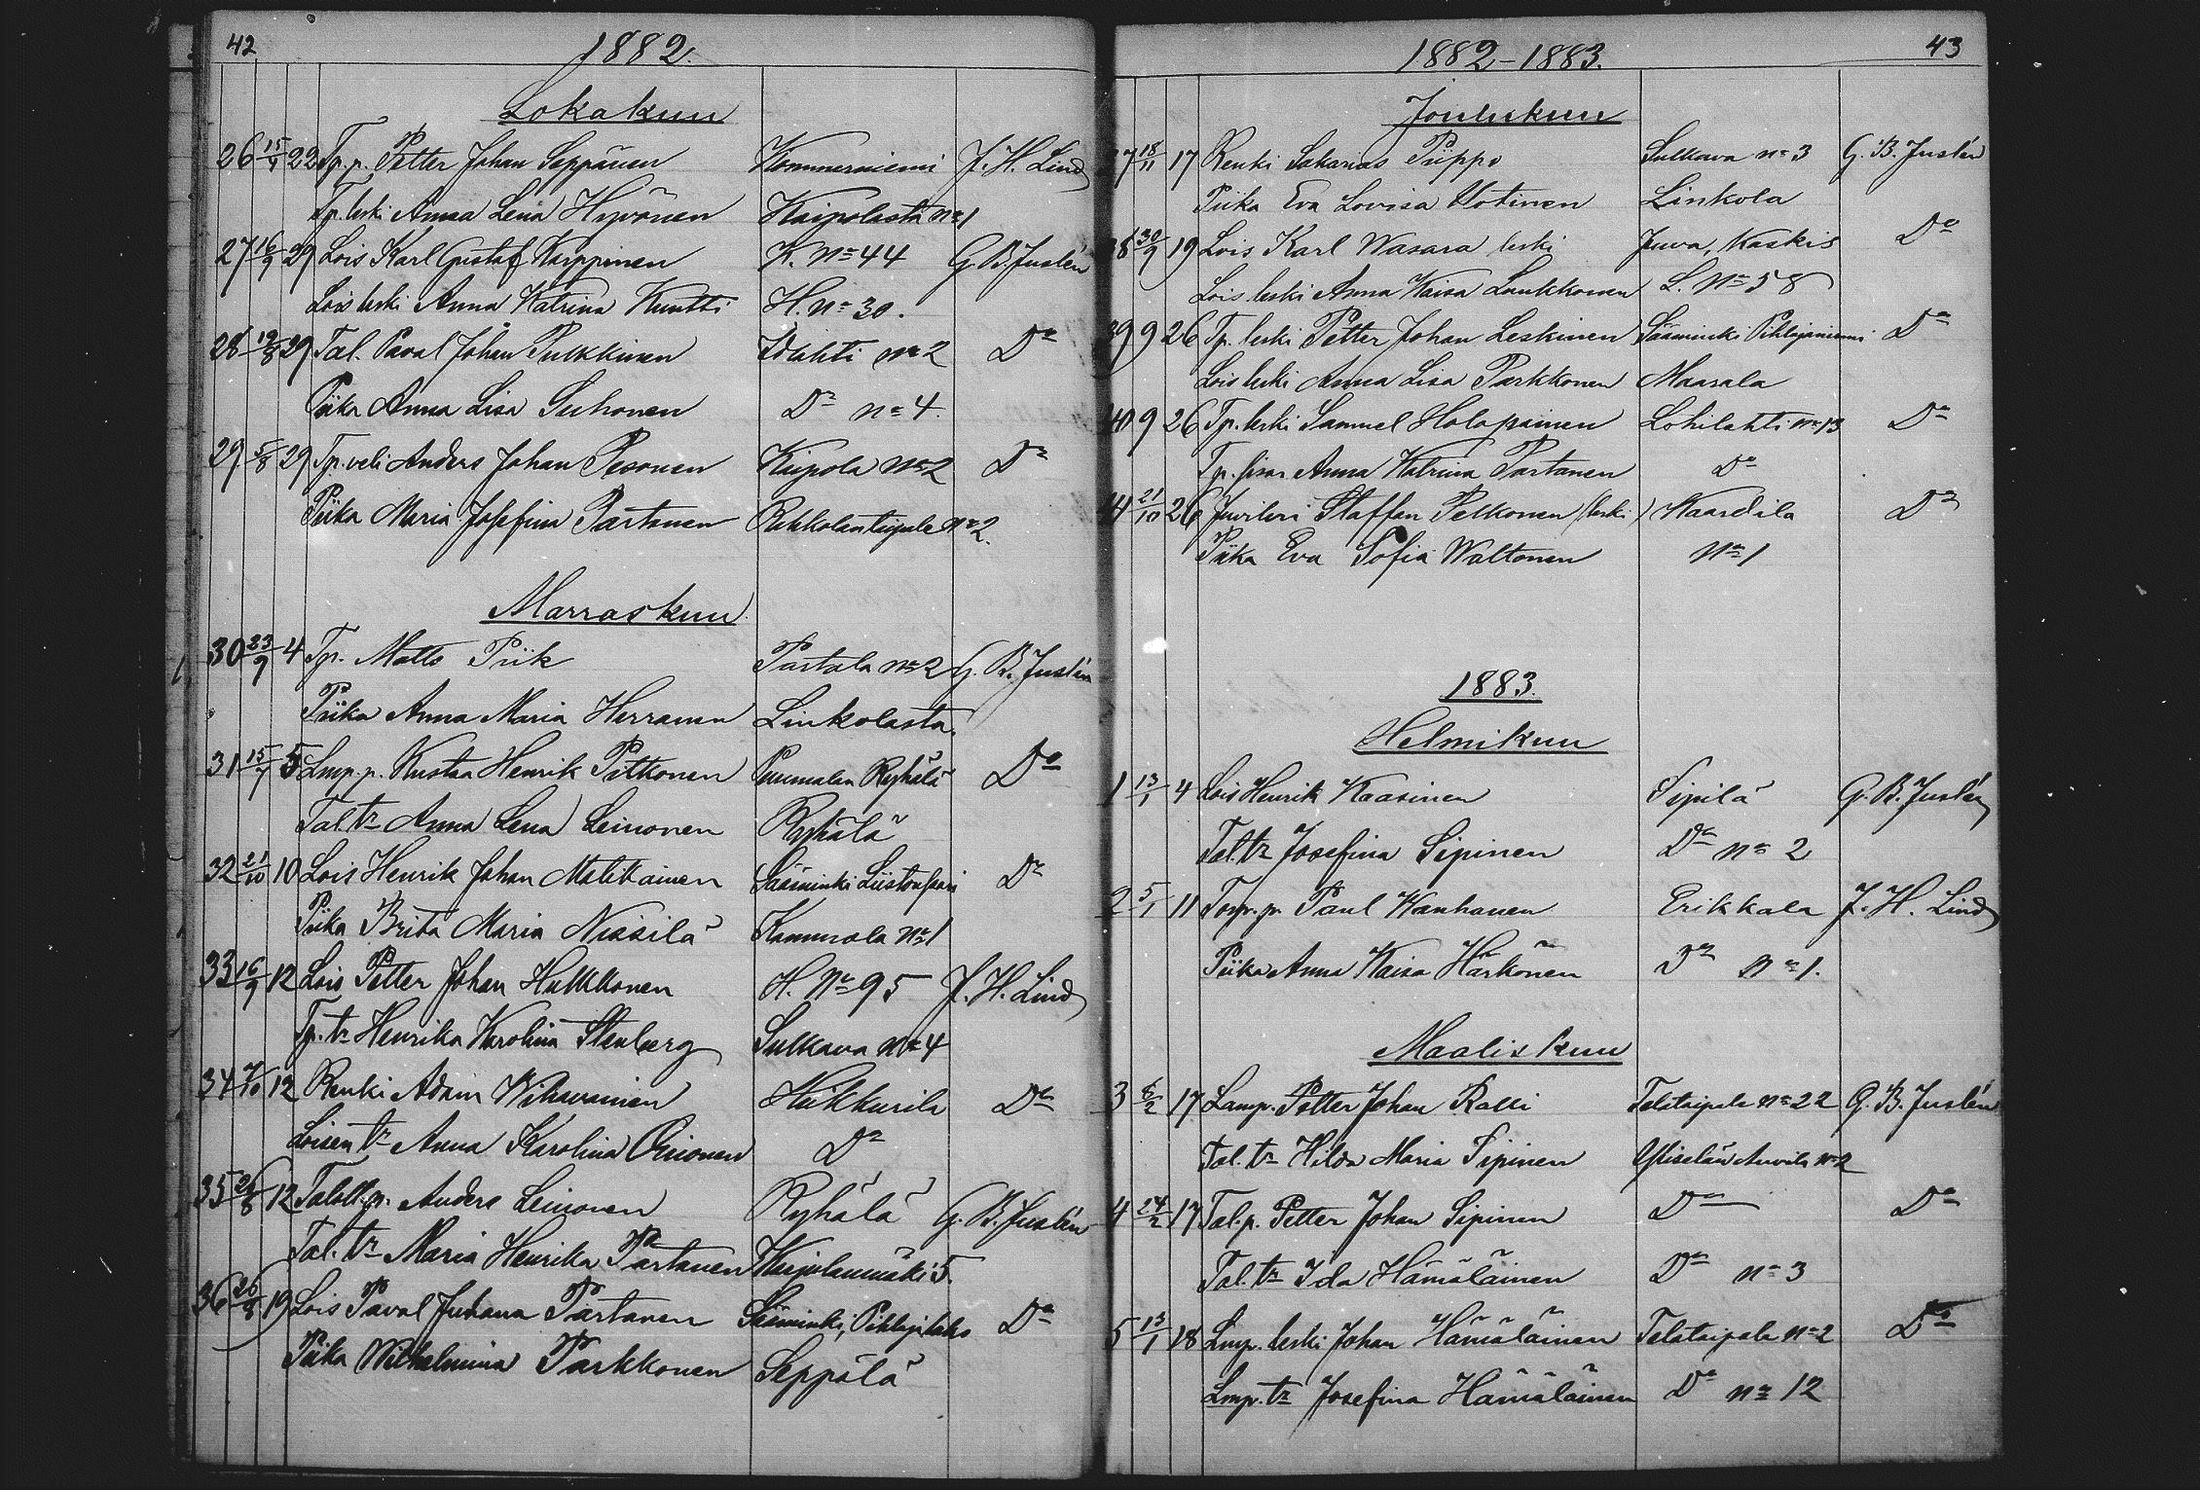 42
1882.
Lokakuu
26 15/9 22 Tp. p. Petter Johan Seppänen Kommerniemi J. H. Lind
Tp. leski Anna Lena Hyvönen Kaipolasta no 1
27 16/9 29 Lois Karl Gustaf Karppinen K. No 44 G. B. Juslén
Lois leski Anna Katrina Kuntti H. no 30.
28 19/8 29 Tal. Paval Johan Pulkkinen Idlahti no 2 Do
Piika Anna Lisa Suhonen Do no 4.
29 5/8 29 Tp. veli Anders Johan Pesonen Kaipola no 2 Do
Piika Maria Josefina Partanen Rukkolantaipale no 2.
Marraskuu
30 23/9 4 Tp. Matts Piik Partala no 2 G. B. Juslén
Piika Anna Maria Herranen Linkolasta.
31 15/7 5 Lmp. p. Kustaa Henrik Pitkonen Puumalan Ryhälä Do
Tal. tr Anna Lena Leinonen Ryhälä
32 21/10 10 Lois Henrik Johan Malikainen Sääminki Liistonsaari Do
Piika Brita Maria Nissilä Kammola no 1
33 16/9 12 Lois Petter Johan Hulkkonen H. No 95 J. H. Lind
Tp. tr Henrika Karolina Stenberg Sulkava no 4
34 12 Renki Adam Wihavainen Hukkurila Do
Loisen tr Anna Karolina Orinonen Do
35 26/8 12 Anders Leinonen Ryhälä G. B. Juslén
Tal. tr Maria Henrika Partanen Karjulanmäki 5.
36 26/8 19 Lois Paval Juhana Partanen Sääminki, Pihlajalaks Do
Piika Wilhelmina Parkkonen Seppälä
1882–1883.
43
Joulukuu
37 18/11 17 Renki Sakarias Piippo Sulkava no 3 G. B. Juslén
Piika Eva Lovisa Hotinen Linkola
38 30/9 19 Lois Karl Wasara leski Juva, Kaskis Do
Lois leski Anna Kaisa Laukkonen L. No 58
39 9 26 Tp. leski Petter Johan Leskinen Sääminki Pihlajaniemi Do
Lois leski Anna Lisa Parkkonen Maarala
40 9 26 Tp. leski Samuel Holopainen Lohilahti no 13 Do
Tp. sisar Anna Katrina Partanen Do
41 21/10 26 Juvileri Staffan Pelkonen (leski) Kaardila Do
Piika Eva Sofia Waltonen No 1
1883.
Helmikuu
1 13/1 4 Lois Henrik Kaasinen Sipilä G. B. Juslén
Tal. tr Josefina Sipinen Do no 2
2 5/1 11 Torp. p. Paul Wanhanen Erikkala J. H. Lind
Piika Anna Kaisa Härkönen Do no 1.
Maaliskuu
3 6/2 17 Lamp. Petter Johan Ralli Telataipale no 22 G. B. Juslén
Tal. tr Hilda Maria Sipinen Auvila no 2
4 24/2 17 Tal. p. Petter Johan Sipinen Do Do
Tal. tr Ida Hämäläinen Do no 3
5 13/1 18 Lmp. leski Johan Hämäläinen Telataipale no 2 Do
Lmp. tr Josefina Hämäläinen Do no 12